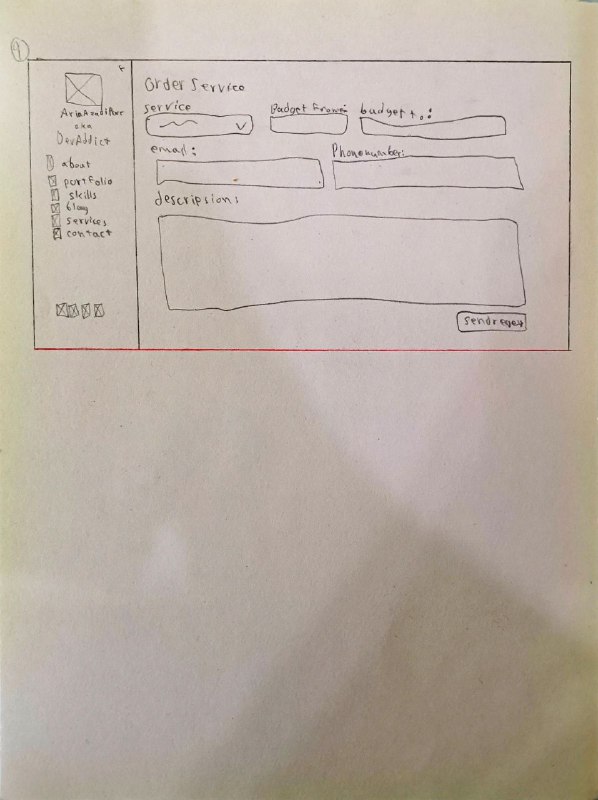 4
Aria Azadi Pour
aka
DevAddict
about
portfolio
skills
blog
services
contact
Order Service
service
Budget From:
budget to:
email:
Phonenumber:
descripsion:
send